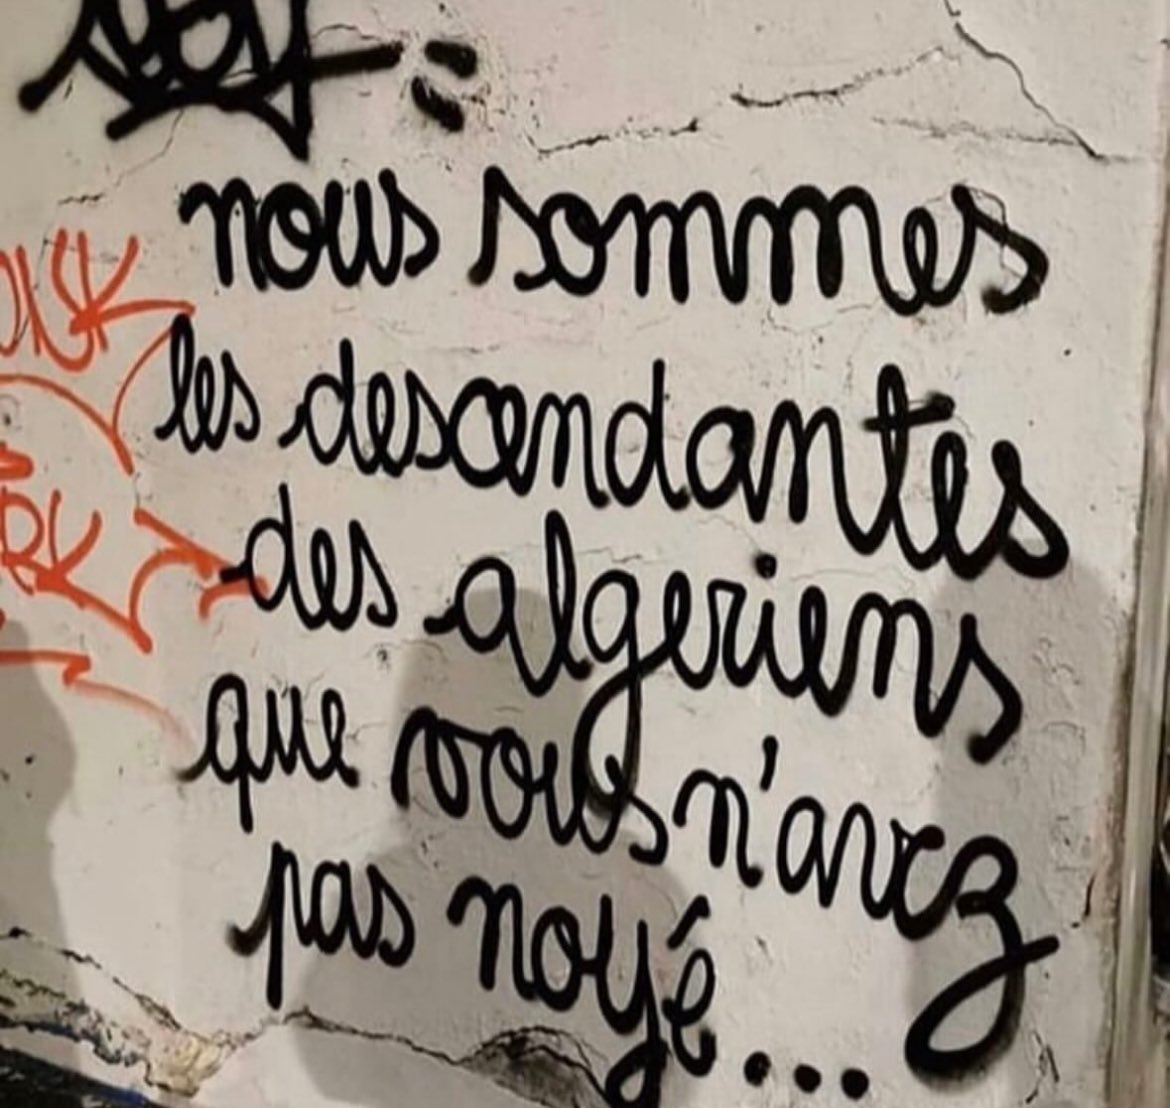 nous sommes
les descendantes
des algeriens
que vous n'avez
pas noyé...